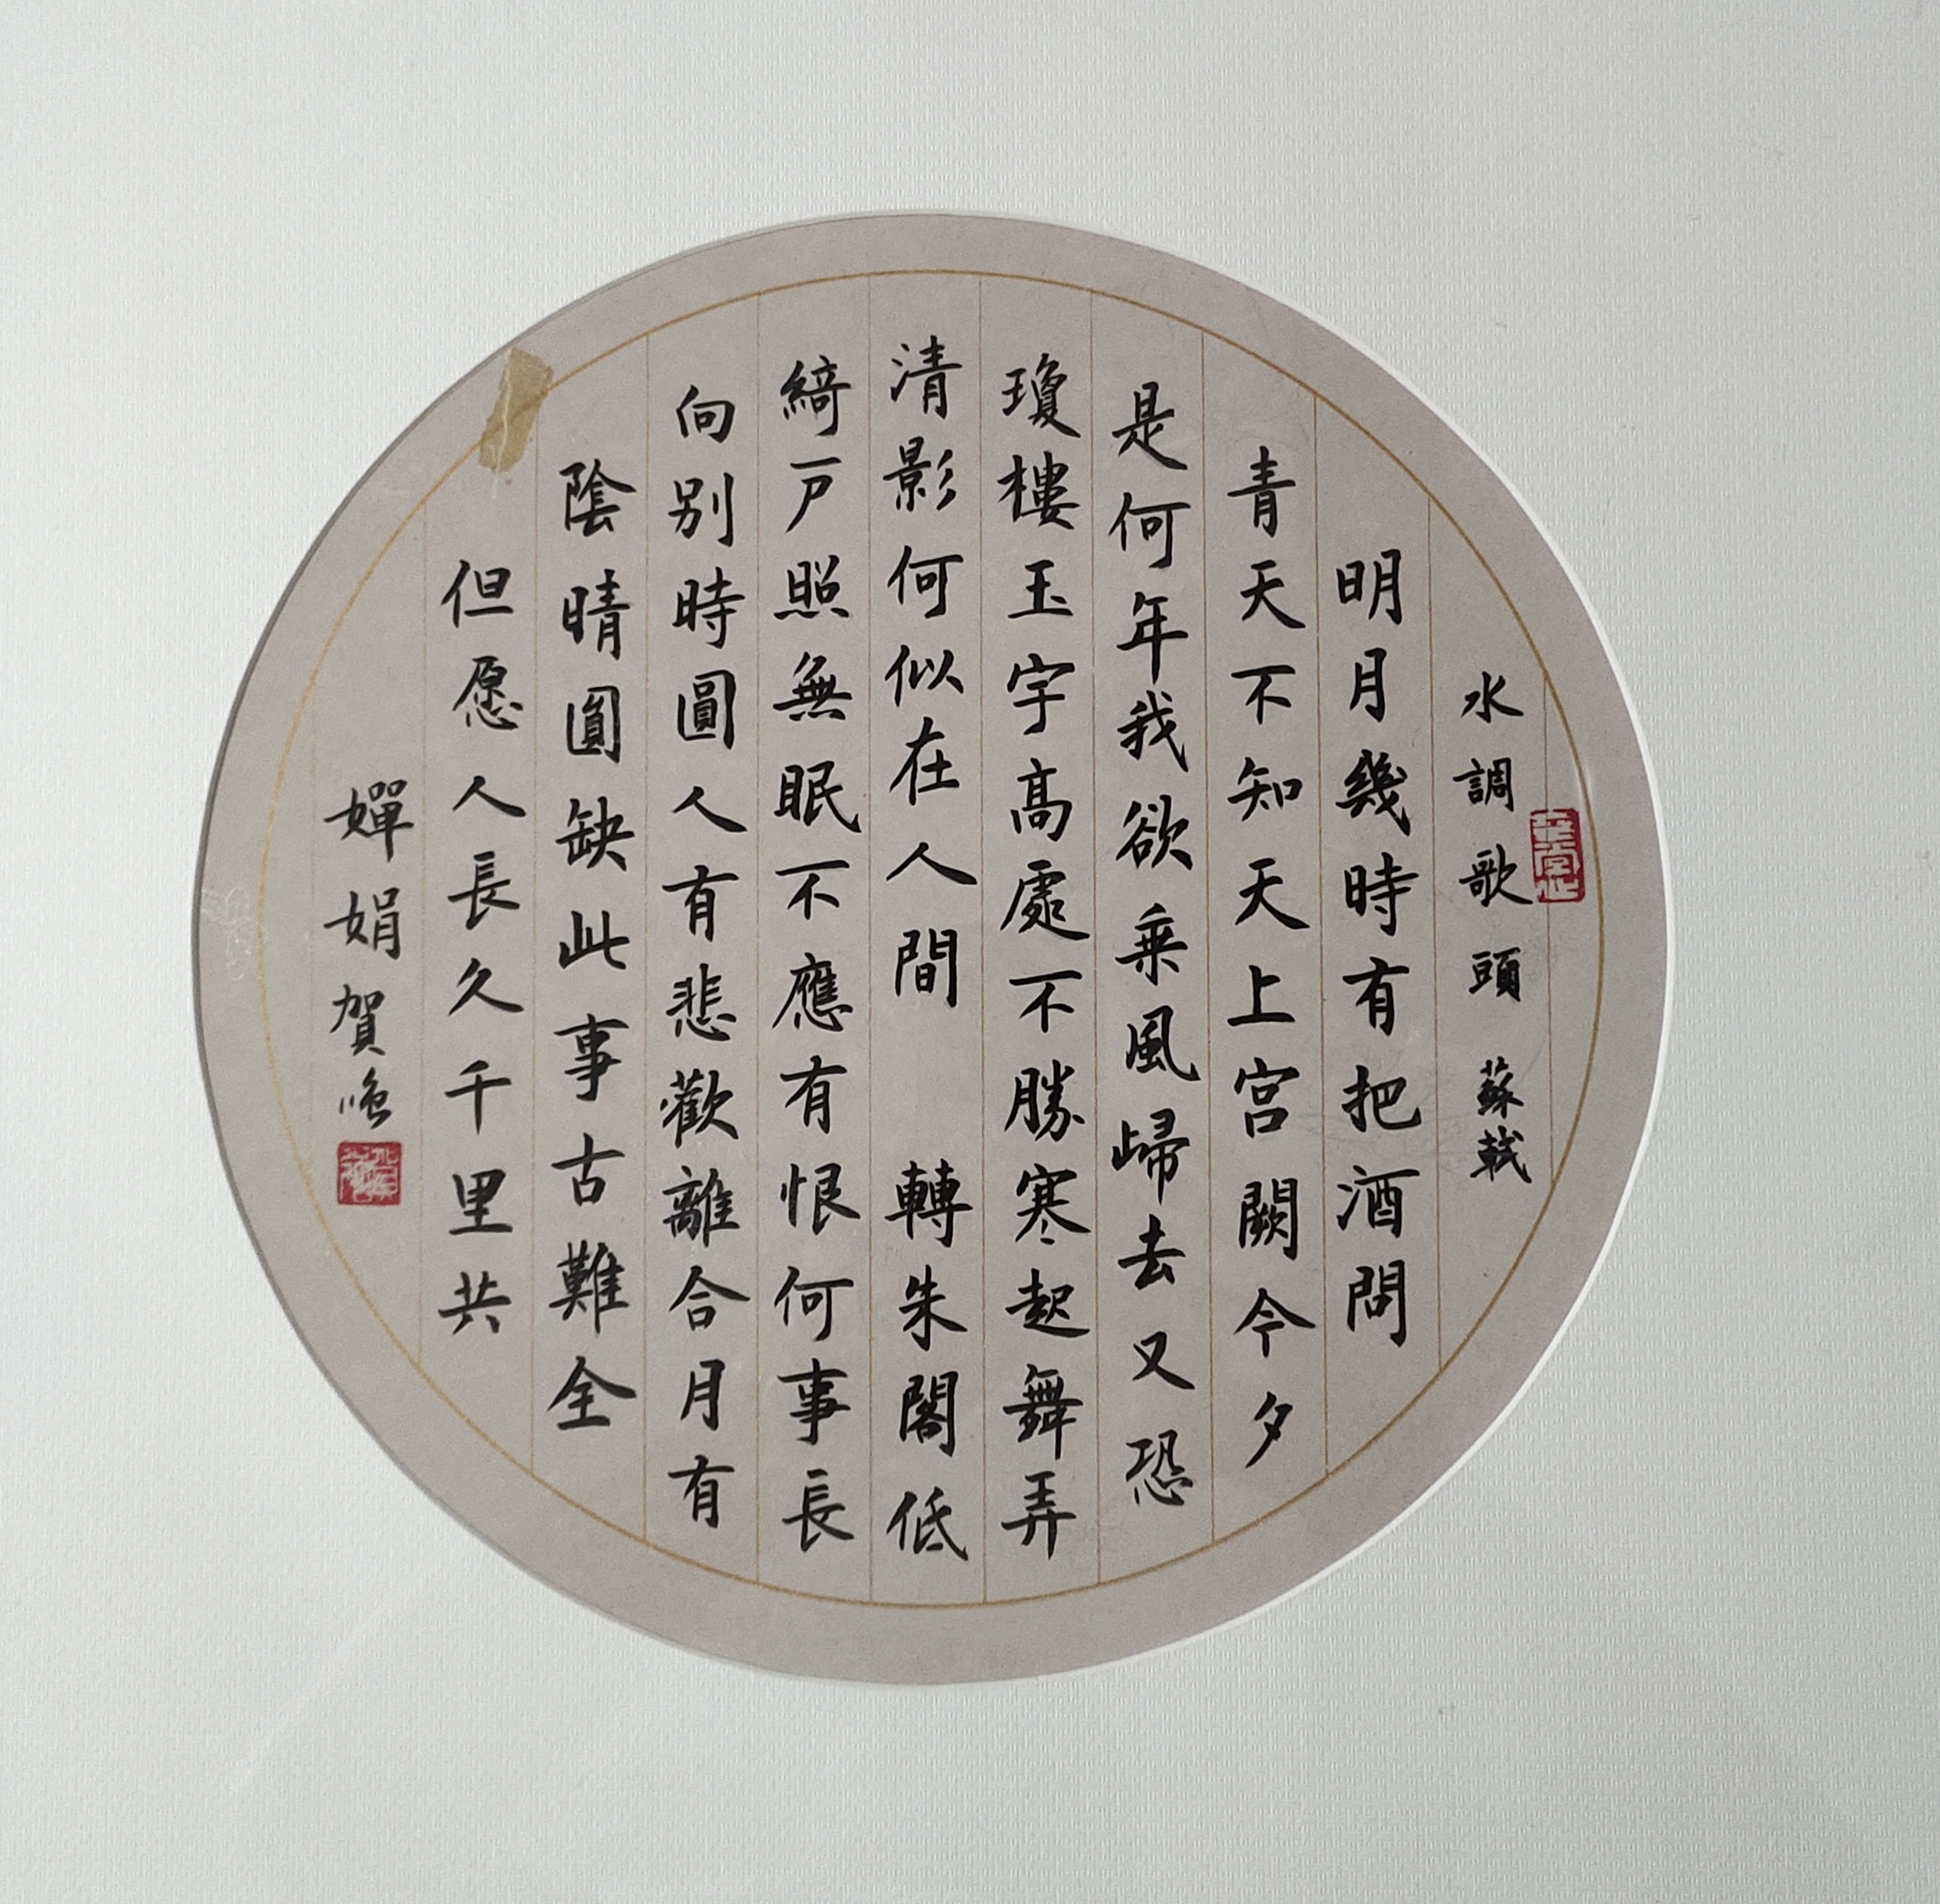 水調歌頭 蘇軾
明月幾時有把酒問
青天不知天上宫闕今夕
是何年我欲乘風歸去又恐
瓊樓玉宇高處不勝寒起舞弄
清影何似在人間 轉朱閣低
綺戸照無眠不應有恨何事長
向別時圓人有悲歡離合月有
陰晴圓缺此事古難全
但愿人長久千里共
嬋娟賀